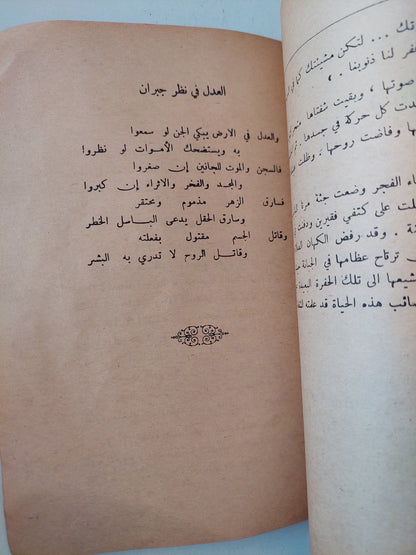 تك ... لتكن مشيئتك كما في
فر لنا ذنوبنا . »
صوتها ، وبقيت شفتاها
دت كل حركة في جسدها .
ها وفاضت روحها . وظلت
اء الفجر وضعت جثة مرتا
لت على كتفي فقيرين
نة . وقد رفض الكهان
ترتاح عظامها في الجبانة
شيعها الى تلك الحفرة
صائب هذه الحياة قد
العدل في نظر جبران
والعدل في الارض يبكي الجن لو سمعوا
به ويستضحك الأموات لو نظروا
فالسجن والموت للجانين إن صغروا
والمجد والفخر والاثراء إن كبروا
فسارق الزهر مذموم ومحتقر
وسارق الحقل يدعى الباسل الخطر
وقاتل الجسم مقتول بفعلته
وقاتل الروح لا تدري به البشر